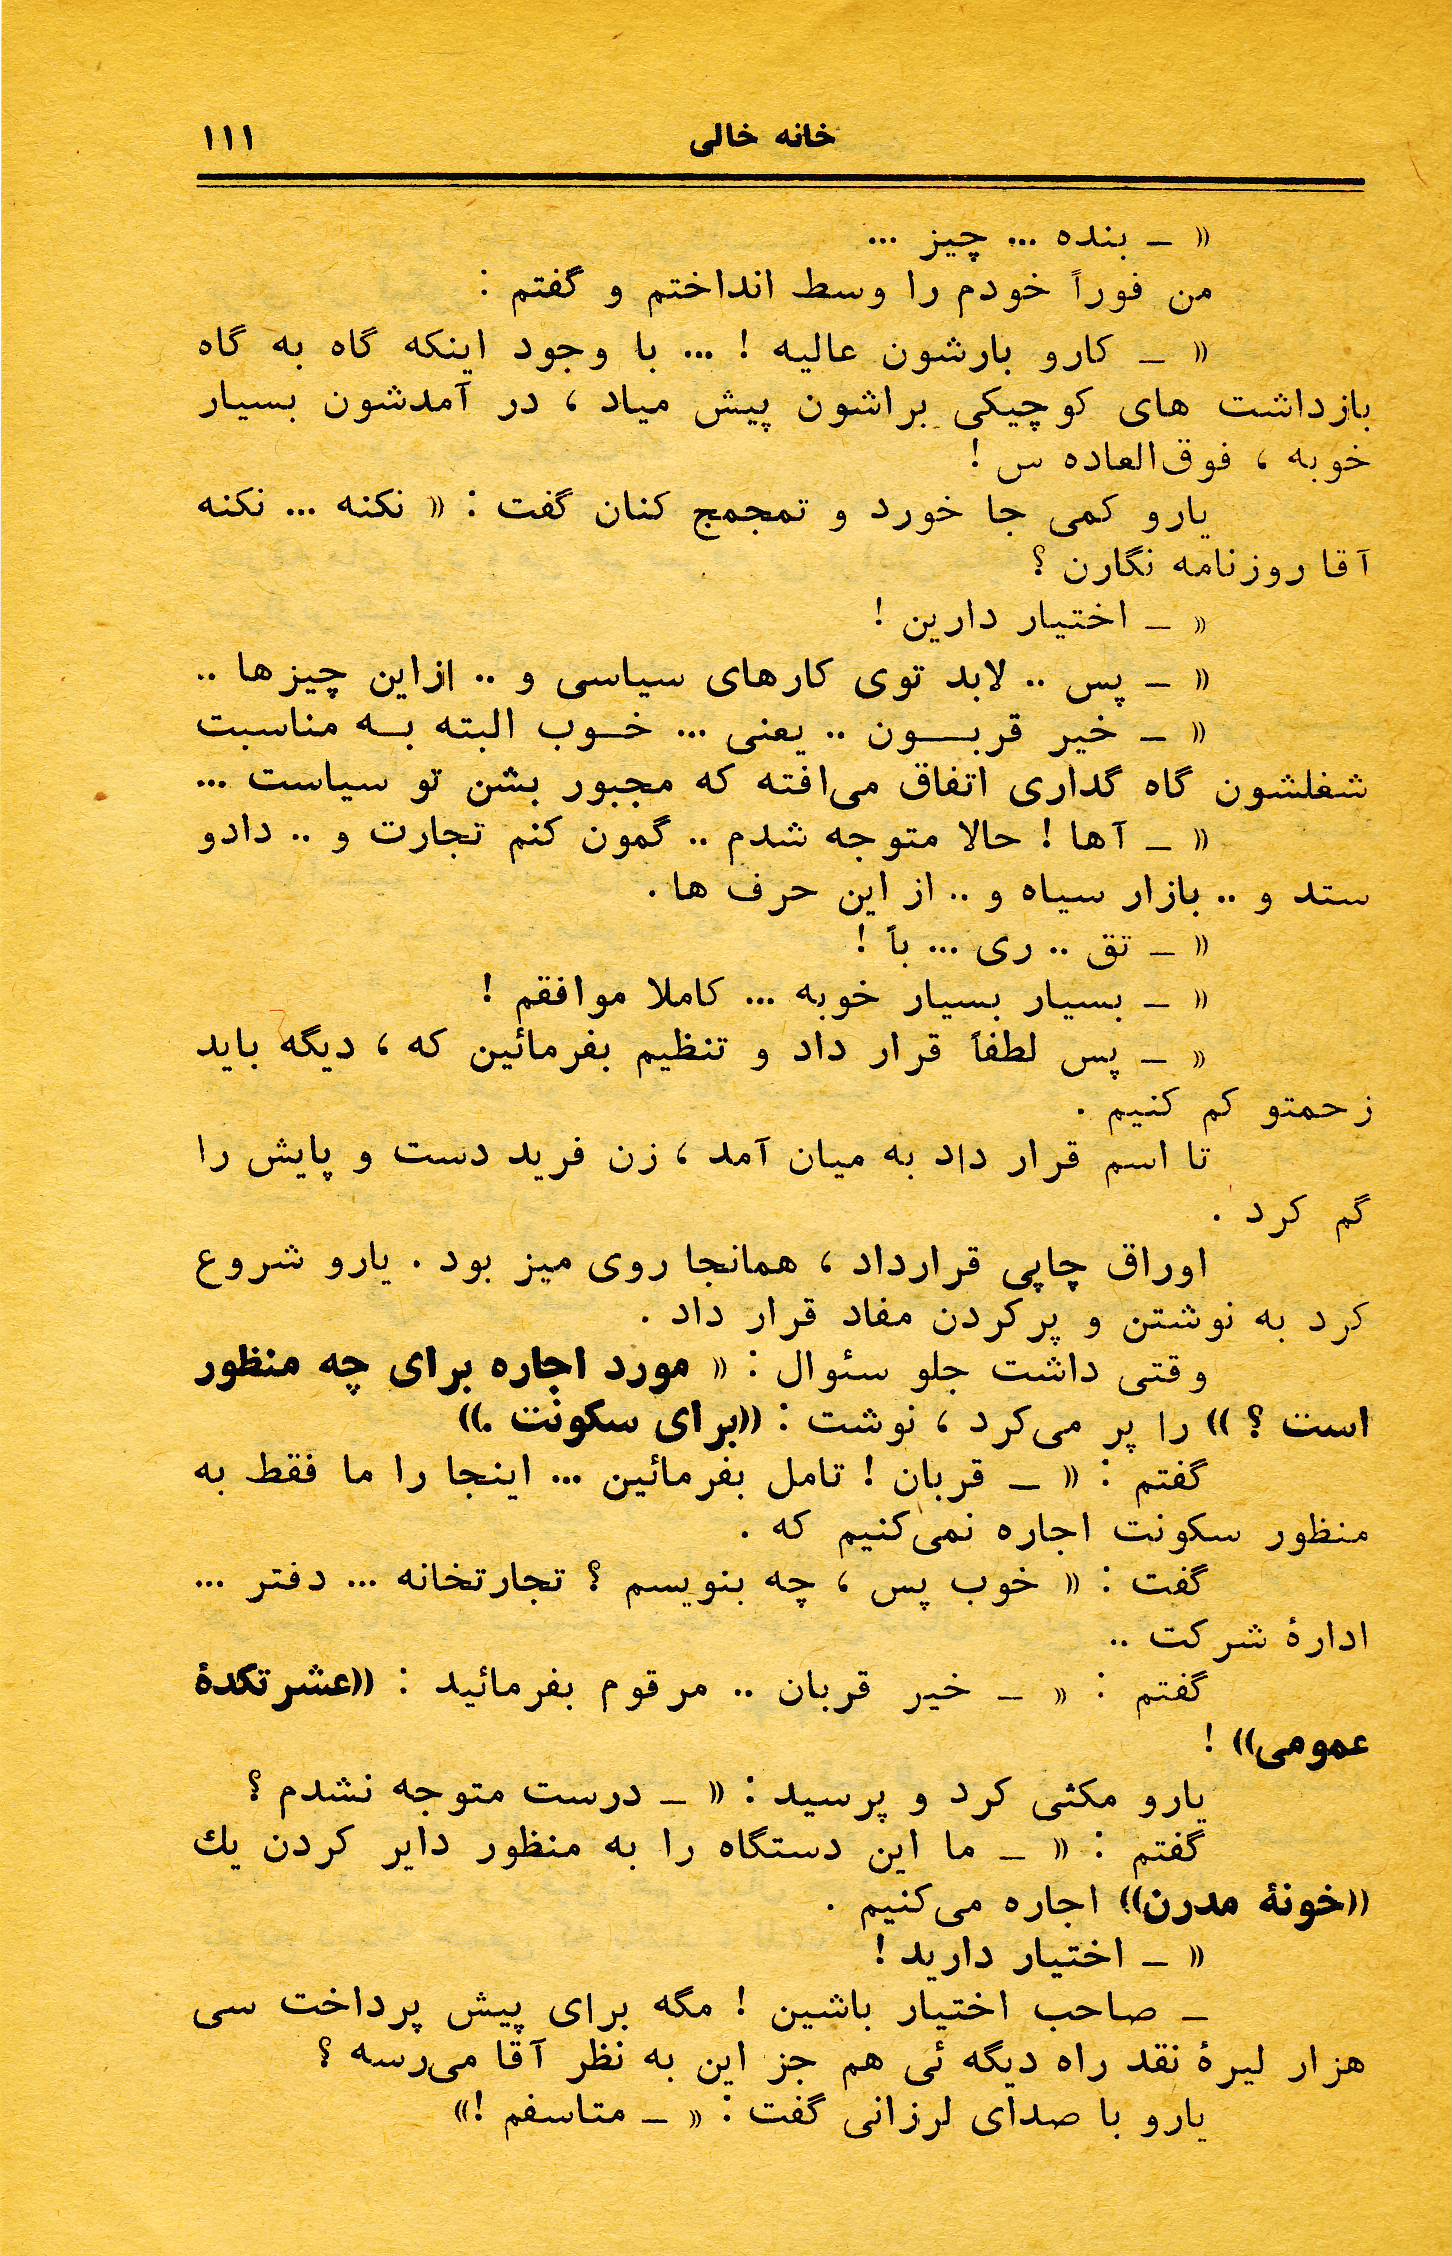 خانه خالی ۱۱۱
« ـ بنده ... چیز ...
من فوراً خودم را وسط انداختم و گفتم :
« ـ کارو بارشون عالیه ! ... با وجود اینکه گاه به گاه
بازداشت های کوچیکی براشون پیش میاد ، در آمدشون بسیار
خوبه ، فوق‌العاده س !
یارو کمی جا خورد و تمجمج کنان گفت : « نکنه ... نکنه
آقا روزنامه نگارن ؟
« ـ اختیار دارین !
« ـ پس .. لابد توی کارهای سیاسی و .. ازاین چیزها ..
« ـ خیر قربــون .. یعنی ... خـوب البته بـه مناسبت
شغلشون گاه گداری اتفاق می‌افته که مجبور بشن تو سیاست ...
« ـ آها ! حالا متوجه شدم .. گمون کنم تجارت و .. دادو
ستد و .. بازار سیاه و .. از این حرف ها .
« ـ تق .. ری ... باً !
« ـ بسیار بسیار خوبه ... کاملا موافقم !
« ـ پس لطفاً قرار داد و تنظیم بفرمائین که ، دیگه باید
زحمتو کم کنیم .
تا اسم قرار داد به میان آمد ، زن فرید دست و پایش را
گم کرد .
اوراق چاپی قرارداد ، همانجا روی میز بود . یارو شروع
کرد به نوشتن و پرکردن مفاد قرار داد .
وقتی داشت جلو سئوال : « مورد اجاره برای چه منظور
است ؟ )) را پر می‌کرد ، نوشت : ((برای سکونت .))
گفتم : « ـ قربان ! تامل بفرمائین ... اینجا را ما فقط به
منظور سکونت اجاره نمی‌کنیم که .
گفت : « خوب پس ، چه بنویسم ؟ تجارتخانه ... دفتر ...
ادارهٔ شرکت ..
گفتم : « ـ خیر قربان .. مرقوم بفرمائید : ((عشرتکدهٔ
عمومی)) !
یارو مکثی کرد و پرسید : « ـ درست متوجه نشدم ؟
گفتم : « ـ ما این دستگاه را به منظور دایر کردن یك
((خونهٔ مدرن)) اجاره می‌کنیم .
« ـ اختیار دارید !
ـ صاحب اختیار باشین ! مگه برای پیش پرداخت سی
هزار لیرهٔ نقد راه دیگه ئی هم جز این به نظر آقا می‌رسه ؟
یارو با صدای لرزانی گفت : « ـ متاسفم !»